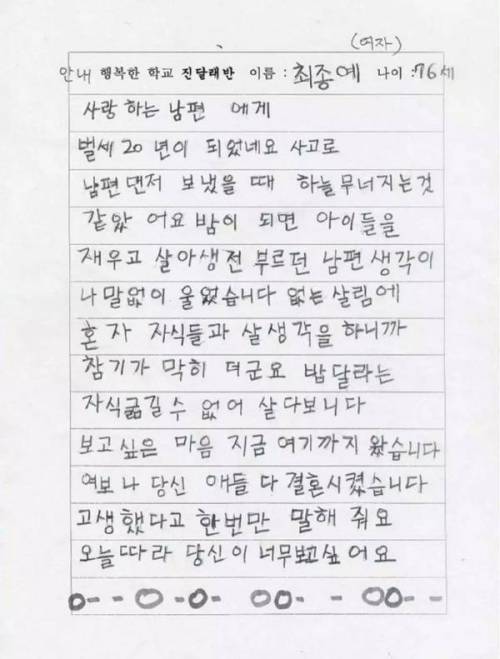 (여자)
안내 행복한 학교 진달래반 이름 : 최종예 나이 : 76세
사랑 하는 남편 에게
벌세 20 년이 되었네요 사고로
남편 먼저 보냈을 때 하늘 무너지는것
같았 어요 밤이 되면 아이들을
재우고 살아생전 부르던 남편 생각이
나 말없이 울었습니다 없는 살림에
혼자 자식들과 살생각을 하니까
참기가 막히 더군요 밥달라는
자식굶길수 없어 살다보니다
보고싶은 마음 지금 여기까지 왔습니다
여보 나 당신 애들 다 결혼시켰습니다
고생했다고 한번만 말해 줘요
오늘따라 당신이 너무보고싶 어요